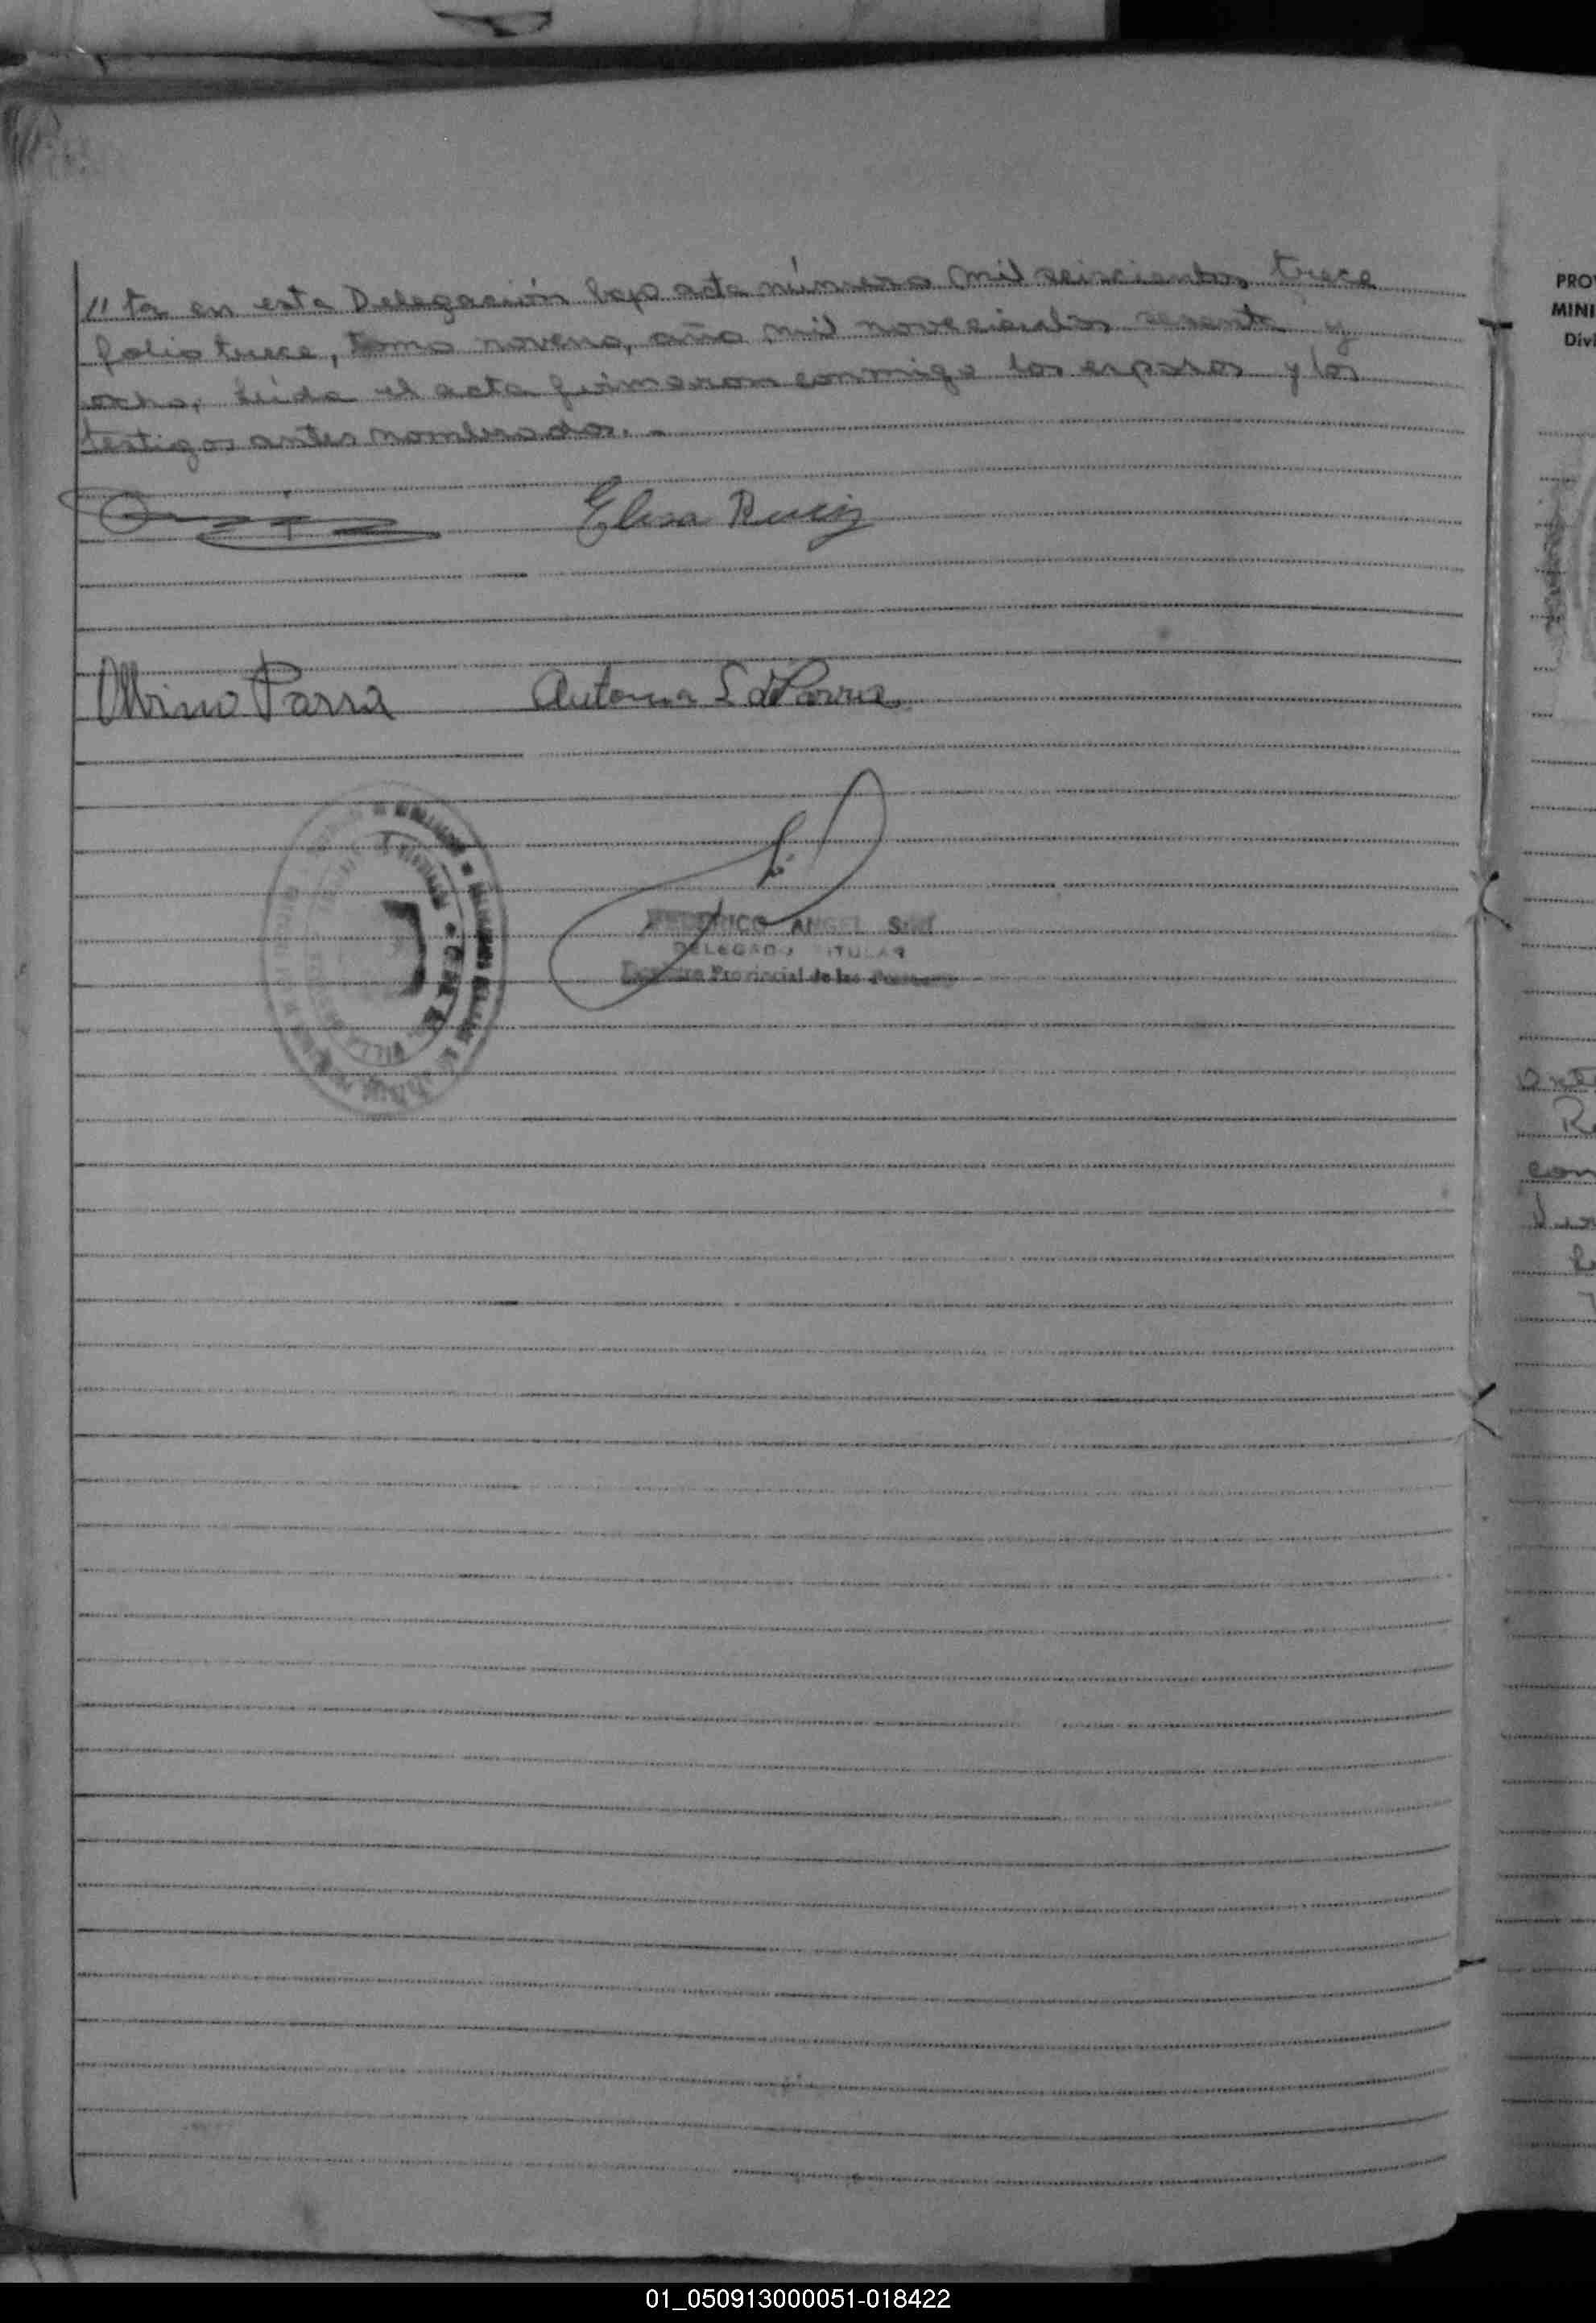 " ta en esta Delegación bajo acta número mil seiscientos trece
folio trece, tomo noveno, año mil novecientos sesenta y
ocho, Leída el acta firmaron conmigo los esposos y los
testigos antes nombrados. -
Elisa Ruiz
Albino Parra Antonia S de Parra
FEDERICO ANGEL
DELEGADO TITULAR
Provincial de las Personas
PRO
MINI
Divi
con
01_050913000051-018422